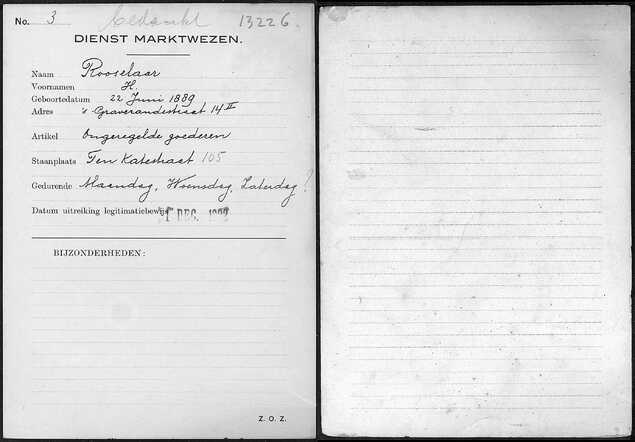 No. 3 bedankt 13226.
DIENST MARKTWEZEN.
Naam Rooselaar
Voornamen H.
Geboortedatum 22 Juni 1889
Adres 's Graverandestraat 14 II
Artikel Ongeregelde goederen
Staanplaats Ten Katestraat 105
Gedurende Maandag, Woensdag, Zaterdag?
Datum uitreiking legitimatiebewijs DEC.
BIJZONDERHEDEN:
Z. O. Z.